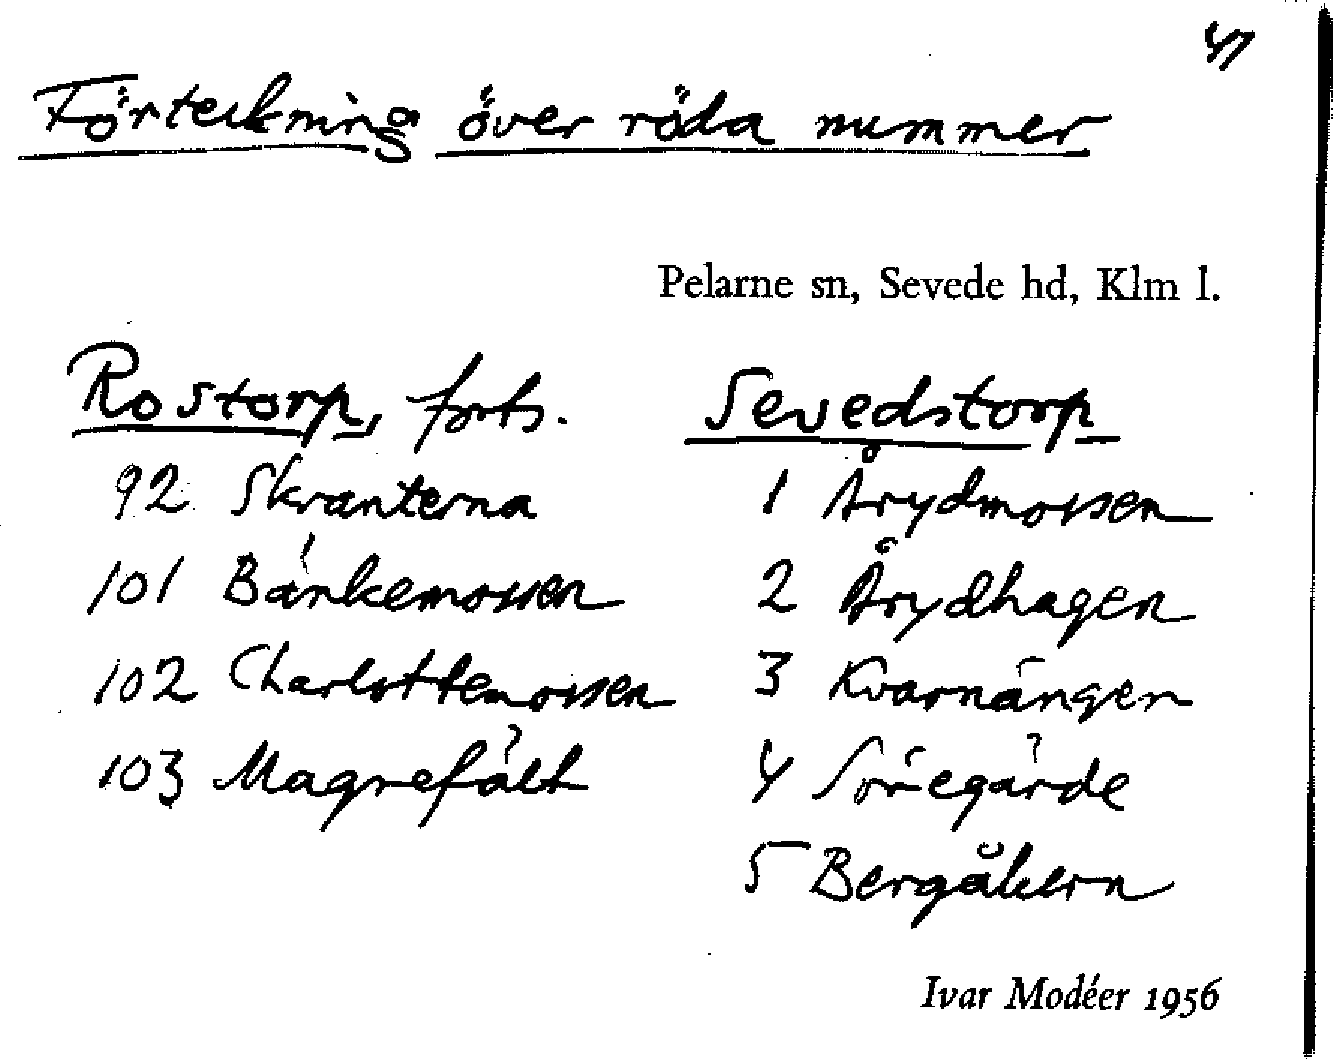 41
Förteckning över röda nummer
Pelarne sn, Sevede hd, Klm l.
Rostorp, forts.
92 Skranterna
101 Bänkemossen
102 Charlottemossen
103 Magrefält
Sevedstorp
1 Årydmossen
2 Årydhagen
3 Kvarnängen
4 Söregärde
5 Bergåkern
Ivar Modéer 1956